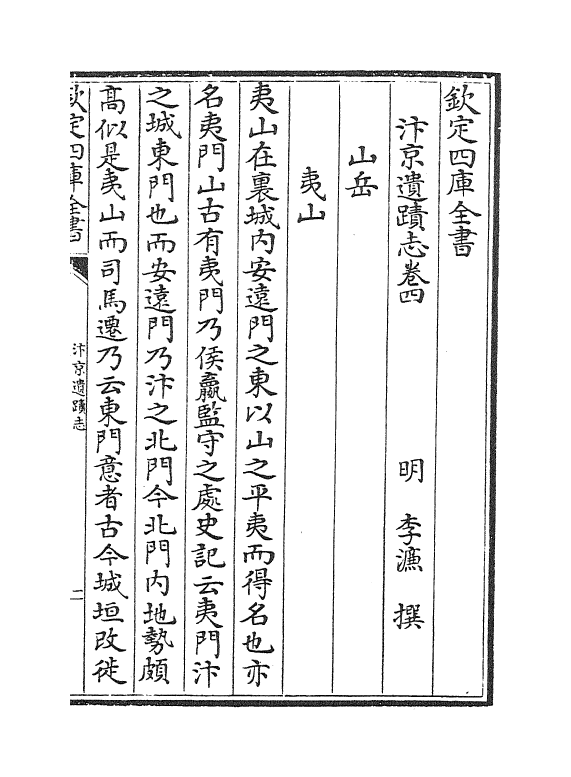 欽定四庫全書
汴京遺蹟志卷四
明 李濂 撰
山岳
夷山
夷山在裏城内安遠門之東以山之平夷而得名也亦
名夷門山古有夷門乃侯嬴監守之處史記云夷門汴
之城東門也而安遠門乃汴之北門今北門内地勢頗
高似是夷山而司馬遷乃云東門意者古今城垣改徙
欽定四庫全書
汴京遺蹟志
二